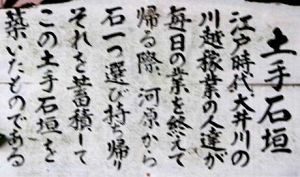 土手石垣
江戸時代大井川の
川越稼業の人達が
毎日の業を終えて
帰る際、河原から
石一つ選び持ち帰り
それを蓄積して
この土手石垣を
築いたものである